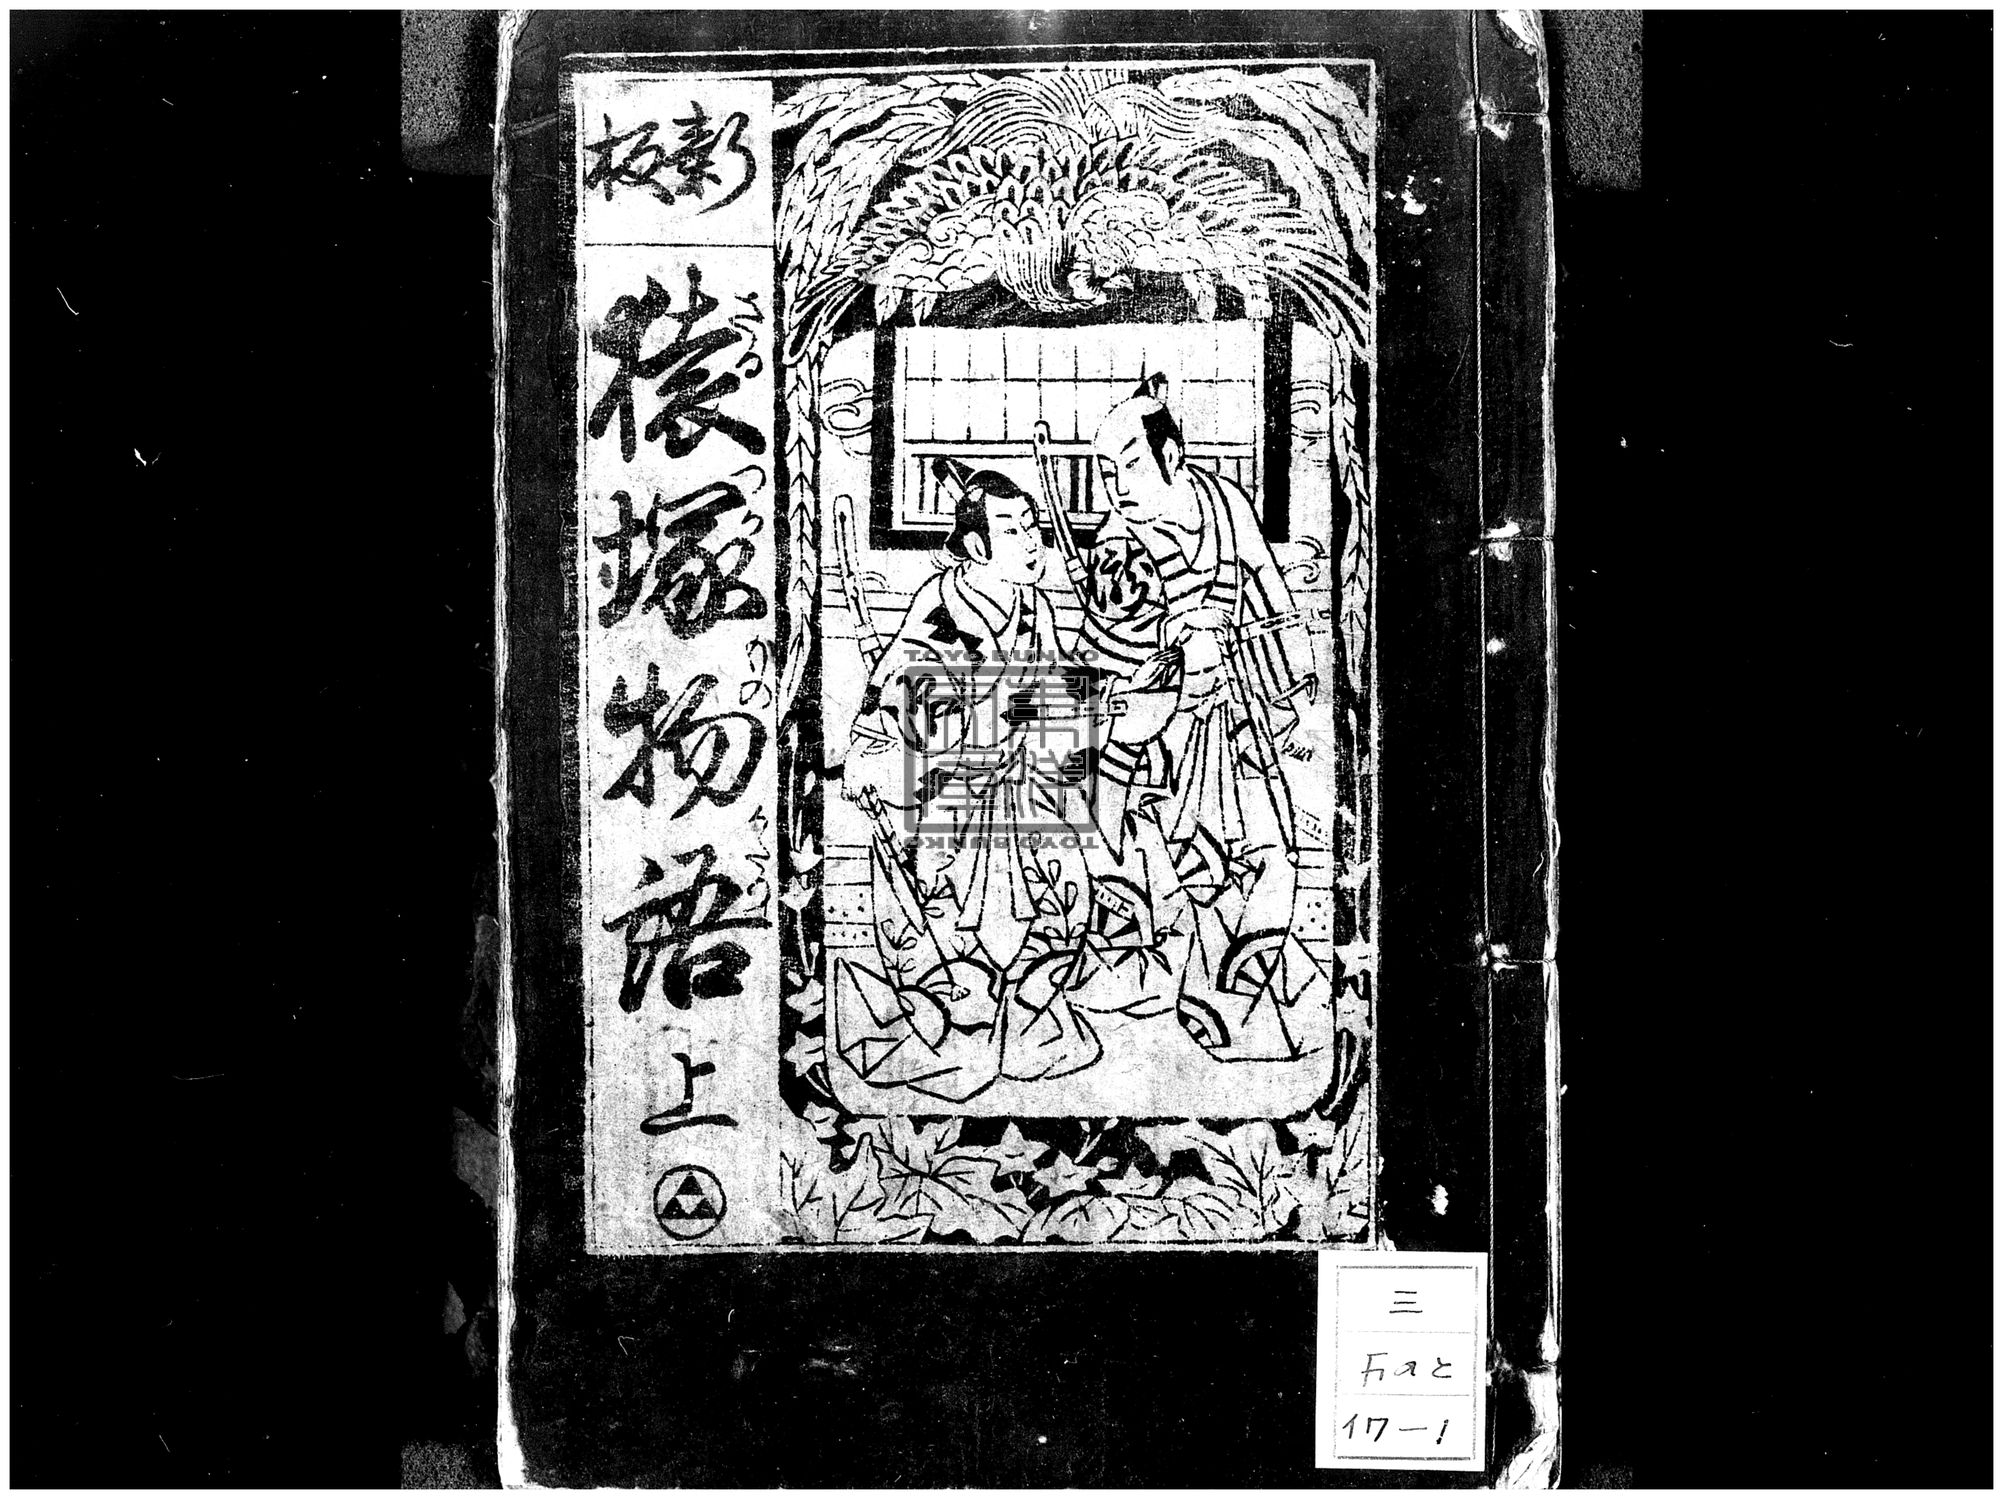 新板
猿塚物語 上
さるつかものかたり
TOYO BUNKO
東洋文庫
TOYO BUNKO
三
Faと
17-1